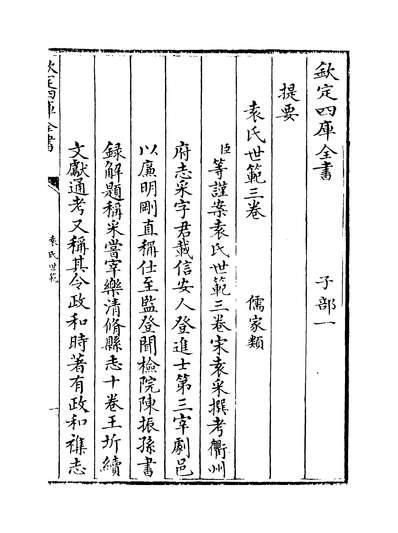 欽定四庫全書　子部一
提要
袁氏世範三卷　儒家類
臣等謹案袁氏世範三卷宋袁采撰考衢州
府志采字君載信安人登進士第三宰劇邑
以廉明剛直稱仕至監登聞檢院陳振孫書
録解題稱采嘗宰樂清脩縣志十卷王圻續
文獻通考又稱其令政和時著有政和襍志
欽定四庫全書
袁氏世範
一